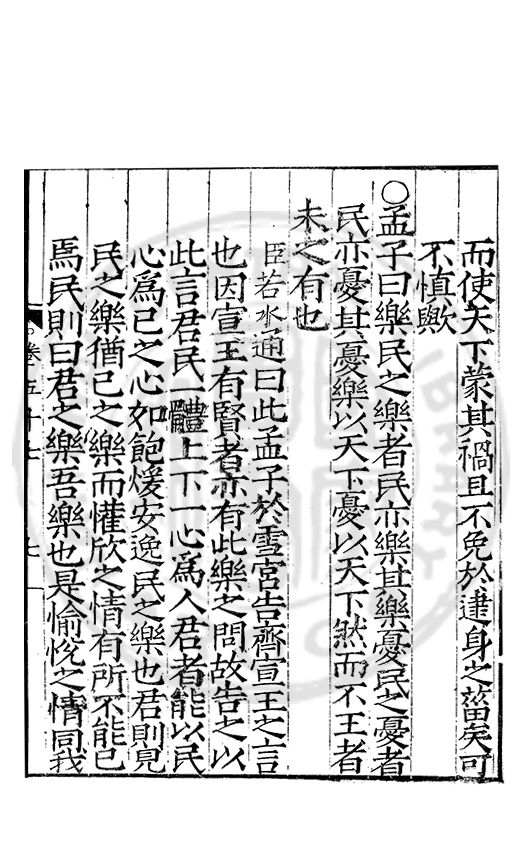 而使天下蒙其禍且不免於逮身之菑矣可
不慎歟
○孟子曰樂民之樂者民亦樂其樂憂民之憂者
民亦憂其憂樂以天下憂以天下然而不王者
未之有也
臣若水通曰此孟子於雪宮告齊宣王之言
也因宣王有賢者亦有此樂之問故告之以
此言君民一體上下一心為人君者能以民
心為已之心如飽煖安逸民之樂也君則見
民之樂猶已之樂而懽欣之情有所不能已
焉民則曰君之樂吾樂也是愉悅之情同我
卷五十七
七